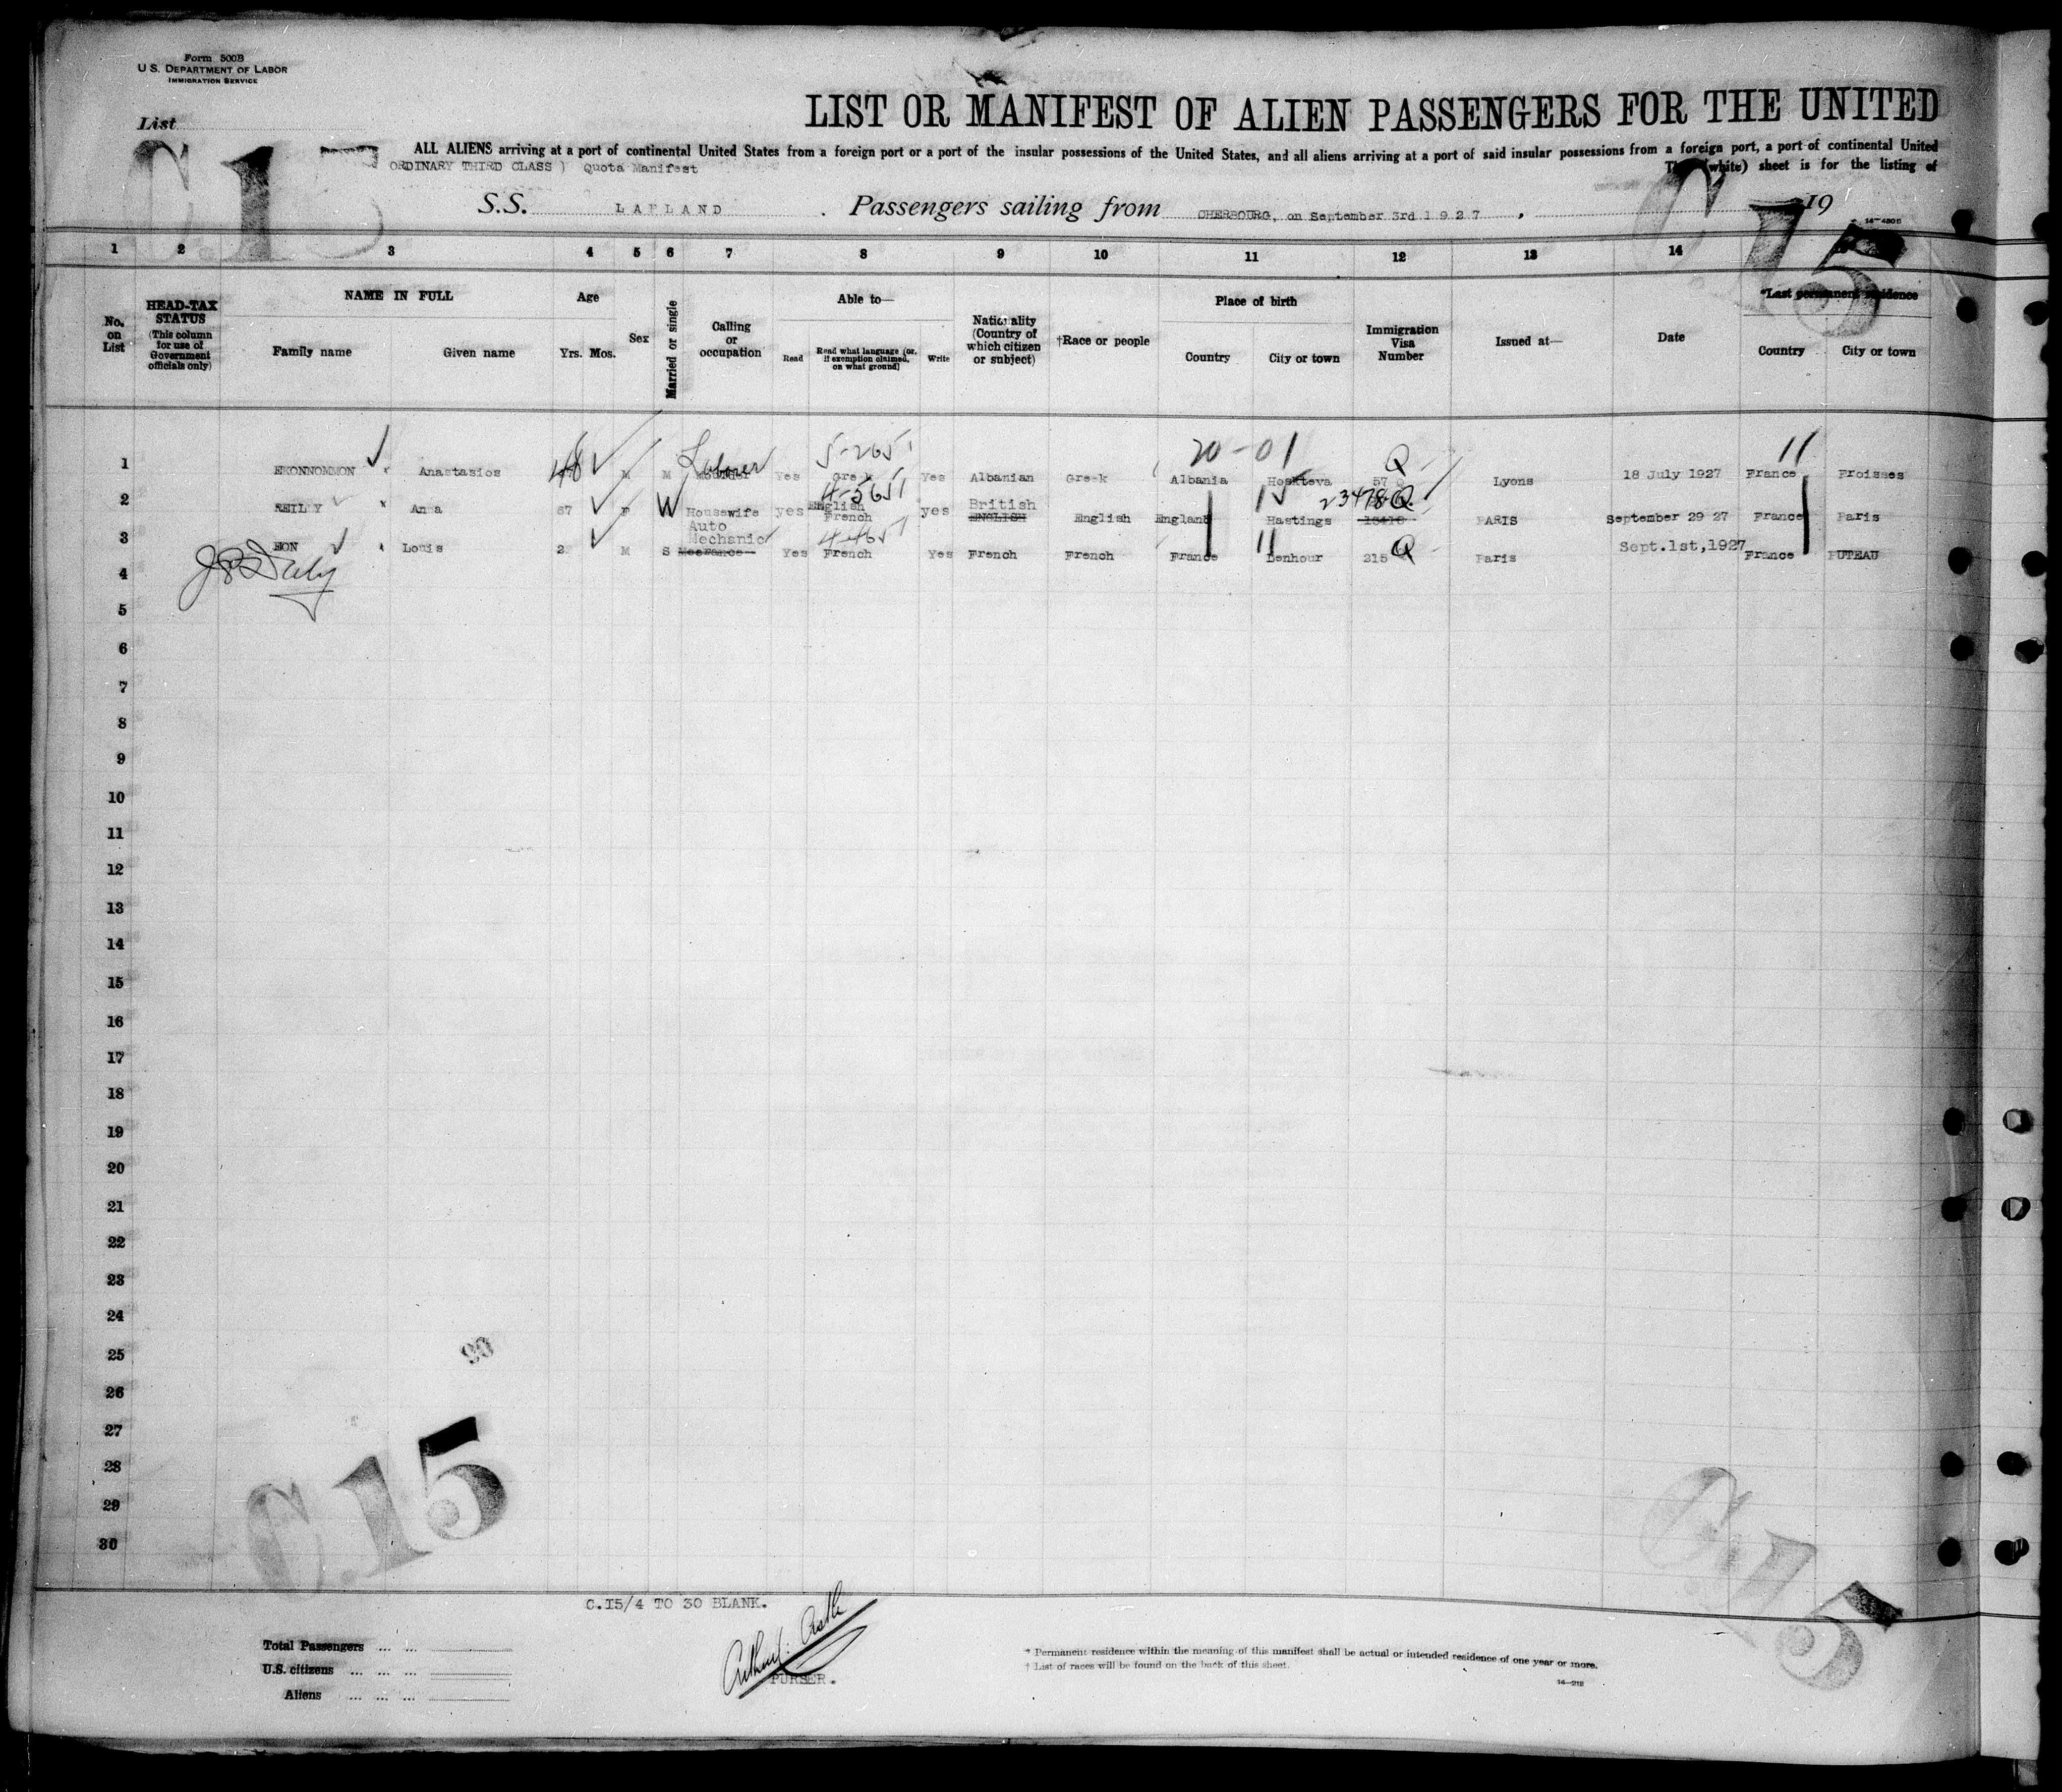 Form 500B
U.S. DEPARTMENT OF LABOR
IMMIGRATION SERVICE
List
LIST OR MANIFEST OF ALIEN PASSENGERS FOR THE UNITED
ALL ALIENS arriving at a port of continental United States from a foreign port or a port of the insular possessions of the United States, and all aliens arriving at a port of said insular possessions from a foreign port, a port of continental United
ORDINARY THIRD CLASS ) Quota Manifest
(white) sheet is for the listing of
C.15
C.15
S.S. LAPLAND . Passengers sailing from CHERBOURG, on September 3rd 1 9 2 7 , 19
14-430B
1 2 3 4 5 6 7 8 9 10 11 12 13 14
No. on List
HEAD-TAX STATUS
(This column for use of Government officials only)
NAME IN FULL
Family name Given name
Age
Yrs. Mos.
Sex
Married or single
Calling or occupation
Able to—
Read Read what language (or, if exemption claimed, on what ground) Write
Nationality (Country of which citizen or subject)
†Race or people
Place of birth
Country City or town
Immigration Visa Number
Issued at—
Date
*Last permanent residence
Country City or town
5-2651 20-01 Q 11
1 EKONNOMMON Anastasios 48 M M Laborer Yes Greek Yes Albanian Greek Albania Hoskteva 57 Lyons 18 July 1927 France Froisses
4-5651 23478Q.
English British
2 REILLY Anna 67 F W Housewife yes French yes ENGLISH English England Hastings PARIS September 29 27 France Paris
Auto
Mechanic 4-4651
3 HON Louis M S Yes French Yes French French France Denhour 215 Q Paris Sept.1st,1927 France PUTEAU
4
5
6
7
8
9
10
11
12
13
14
15
16
17
18
19
20
21
22
23
24
25
26
27
28
29
30
90
C.15
C.15
C.I5/4 TO 30 BLANK.
PURSER.
Total Passengers ... ...
U.S. citizens ... ... ...
Aliens ... ... ...
* Permanent residence within the meaning of this manifest shall be actual or intended residence of one year or more.
† List of races will be found on the back of this sheet.